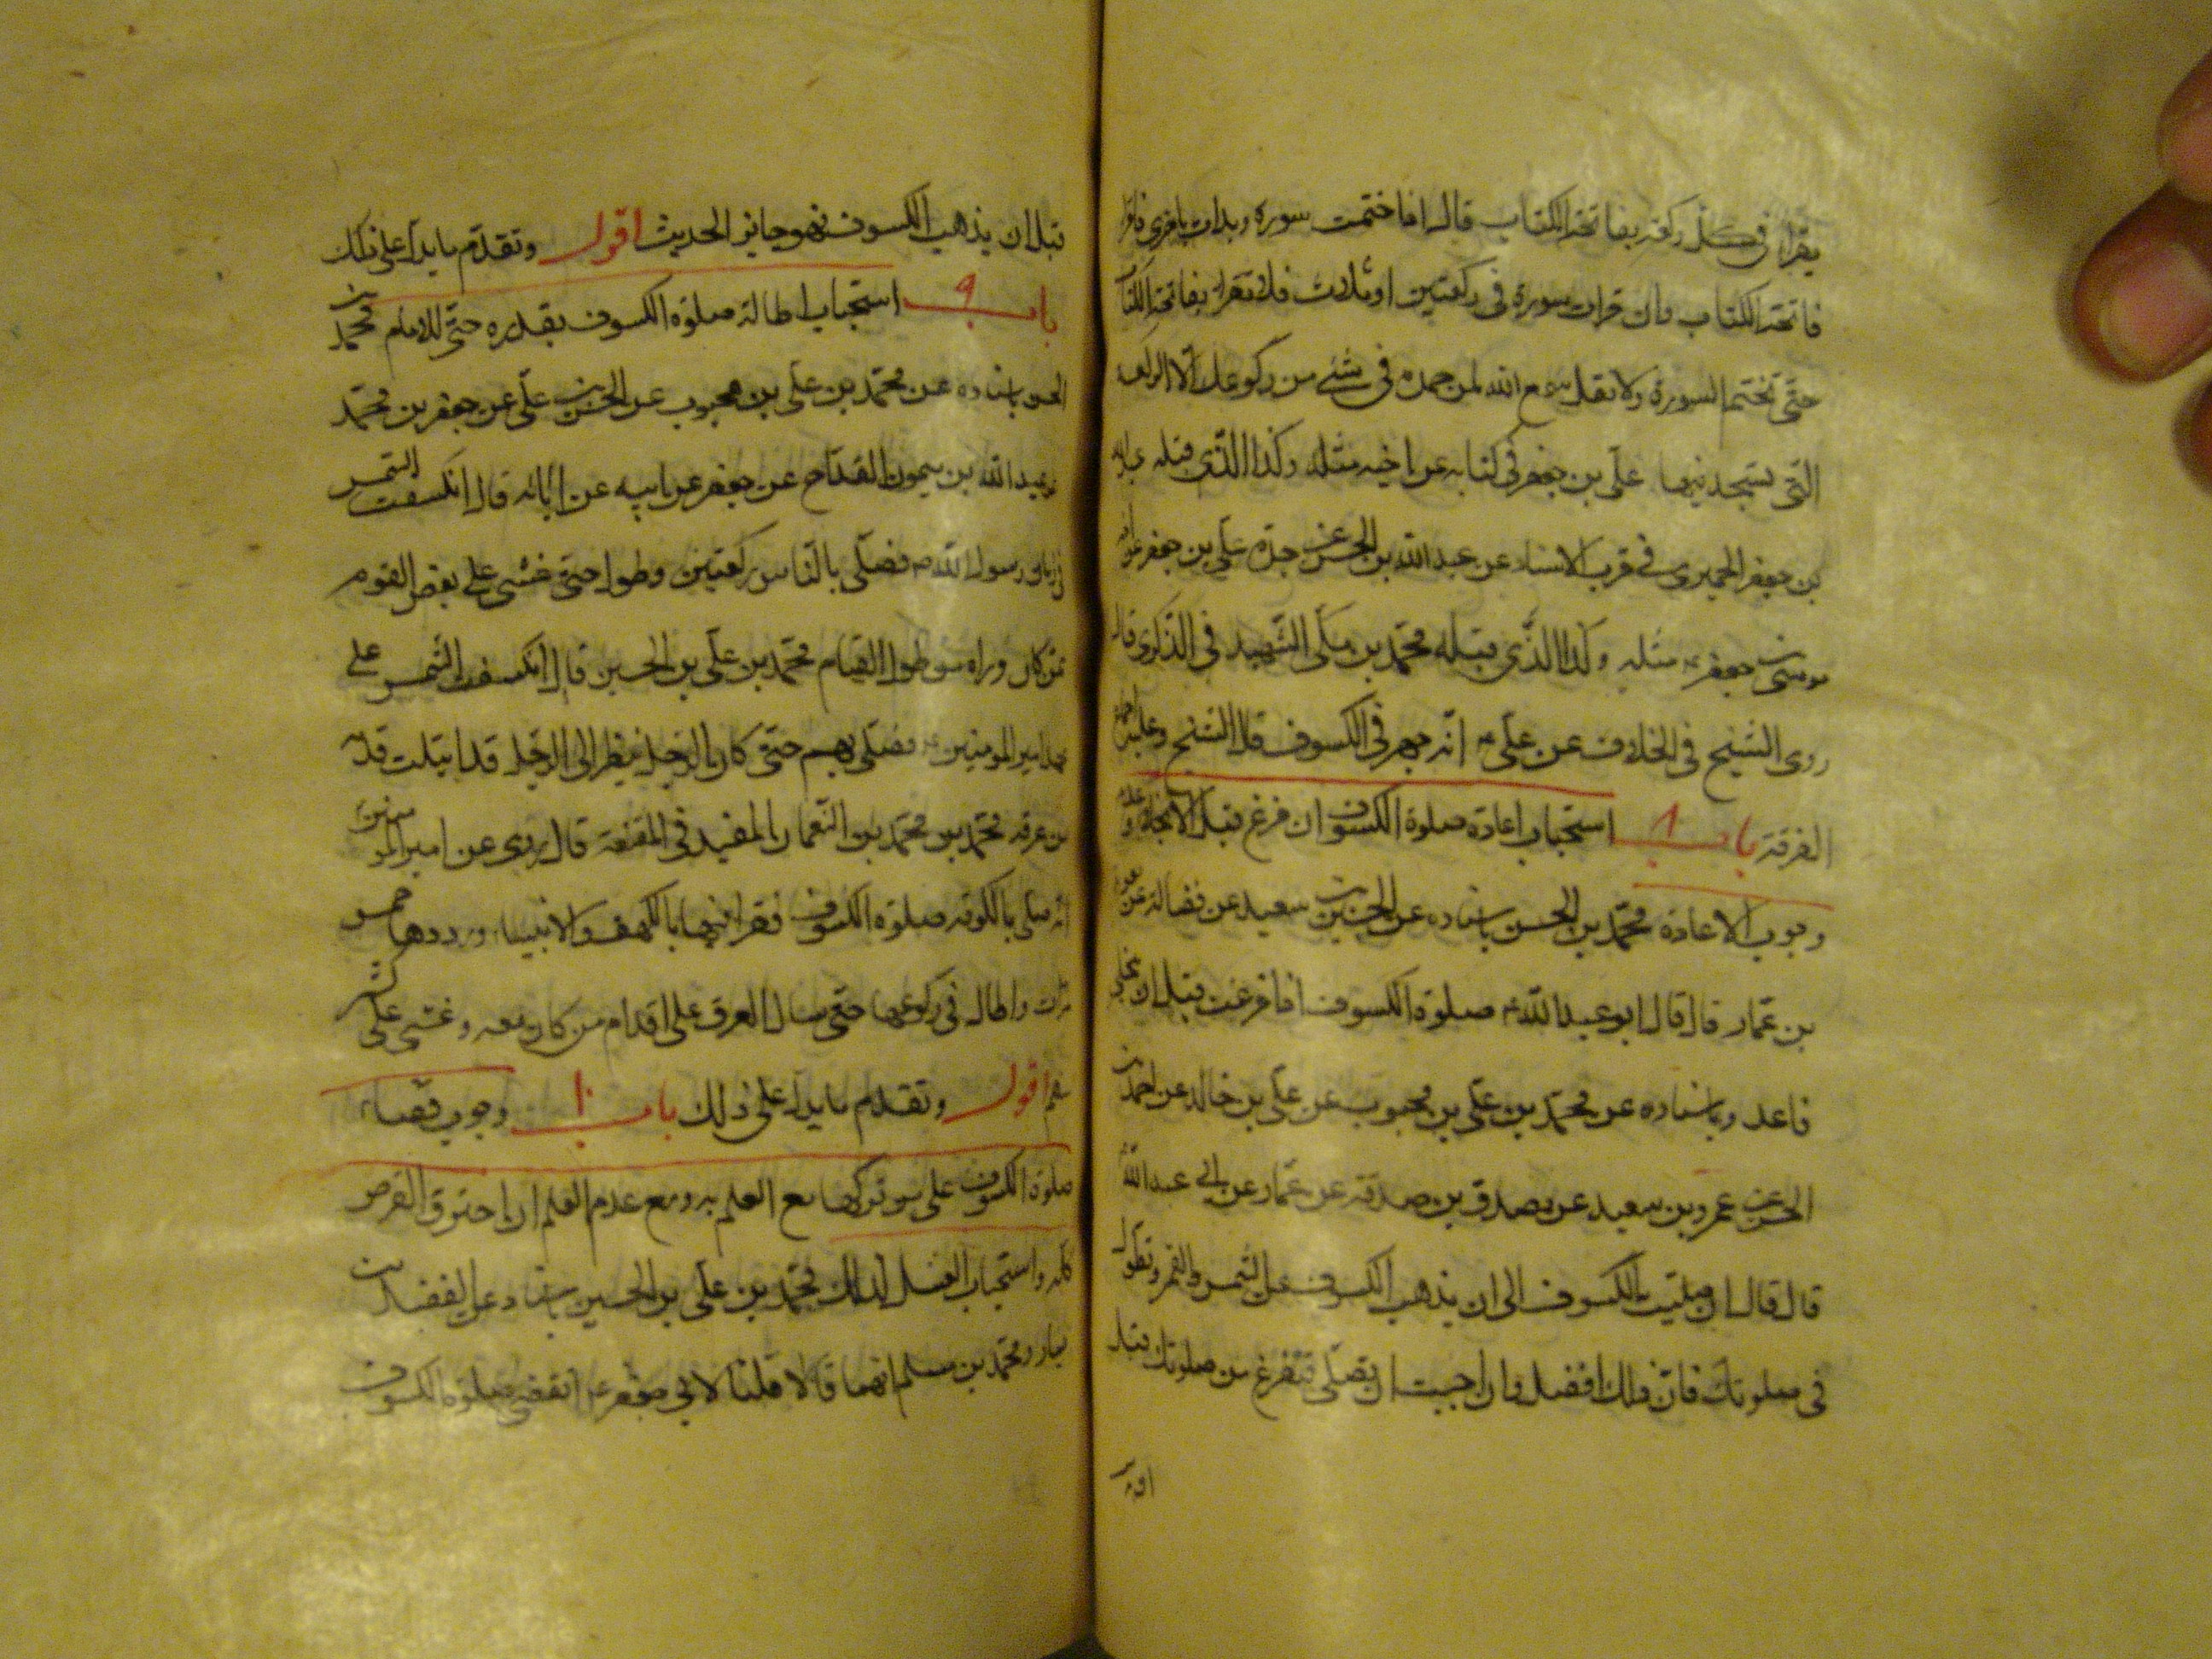 يقرا في كل ركعة بفاتحة الكتاب قال اذا ختمت سورة وبدات باخرى فاقرا
فاتحة الكتاب وان قرات سورة في ركعتين او ثلاث فلا تقرا بفاتحة الكتاب
حتى تختم السورة ولا تقل سمع الله لمن حمده في شئ من ركوعك الا الركعة
التى تسجد فيها علي بن جعفر في كتابه عن اخيه مثله وكذا الذى قبله عبدالله
بن جعفر الحميري في قرب الاسناد عن عبد الله بن الحسن عن جده علي بن جعفر عن اخيه
موسى بن جعفر ع مثله وكذا الذى قبله محمد بن مكي الشهيد في الذكرى قال
روى الشيخ في الخلاف عن علي ع انه جهر في الكسوف قال الشيخ وعليه اجماع
الفرقة باب ٨ استحباب اعادة صلوة الكسوف ان فرغ قبل الانجلاء وعدم
وجوب الاعادة محمد بن الحسن باسناده عن الحسين بن سعيد عن فضالة عن معوية
بن عمار قال قال ابو عبد الله ع صلوة الكسوف اذا فرغت قبل ان ينجلي
فاعد وباسناده عن محمد بن علي بن محبوب عن علي بن خالد عن احمد بن
الحسن عن عمرو بن سعيد عن مصدق بن صدقة عن عمار عن ابي عبد الله
قال قال ان صليت الكسوف الى ان يذهب الكسوف عن الشمس والقمر وتطول
في صلوتك فان ذلك افضل وان احببت ان تصلى فتفرغ من صلوتك قبل
قبل ان يذهب الكسوف فهو جايز الحديث اقول وتقدم ما يدل على ذلك
باب ٩ استحباب اطالة صلوة الكسوف بقدره حتى للامام محمد بن
الحسن باسناده عن محمد بن علي بن محبوب عن الحسن بن علي عن جعفر بن محمد
عن عبد الله بن ميمون القداح عن جعفر عن ابيه عن ابائه قال انكسفت الشمس
في زمان رسول الله ص فصلى بالناس ركعتين وطول حتى غشى على بعض القوم
ممن كان وراه من طول القيام محمد بن علي بن الحسين قال انكسفت الشمس على
عهد امير المومنين ع فصلى بهم حتى كان الرجل ينظر الى الرجل قد ابتلت قدمه
من عرقه محمد بن محمد بن النعمان المفيد في المقنعة قال روى عن امير المومنين
انه صلى بالكوفة صلوة الكسوف فقرا فيها بالكهف والانبيا ورددها خمس
مرات واطال في ركوعها حتى سال العرق على اقدام من كان معه وغشى على كثير
منهم اقول وتقدم ما يدل على ذلك باب ١٠ وجوب قضاء
صلوة الكسوف على من تركها مع العلم به ومع عدم العلم ان احترق القرص
كله واستحباب الغسل لذلك محمد بن علي بن الحسين باسناده عن الفضيل بن
يسار ومحمد بن مسلم انهما قالا قلنا لابي جعفر ع اتقضى صلوة الكسوف